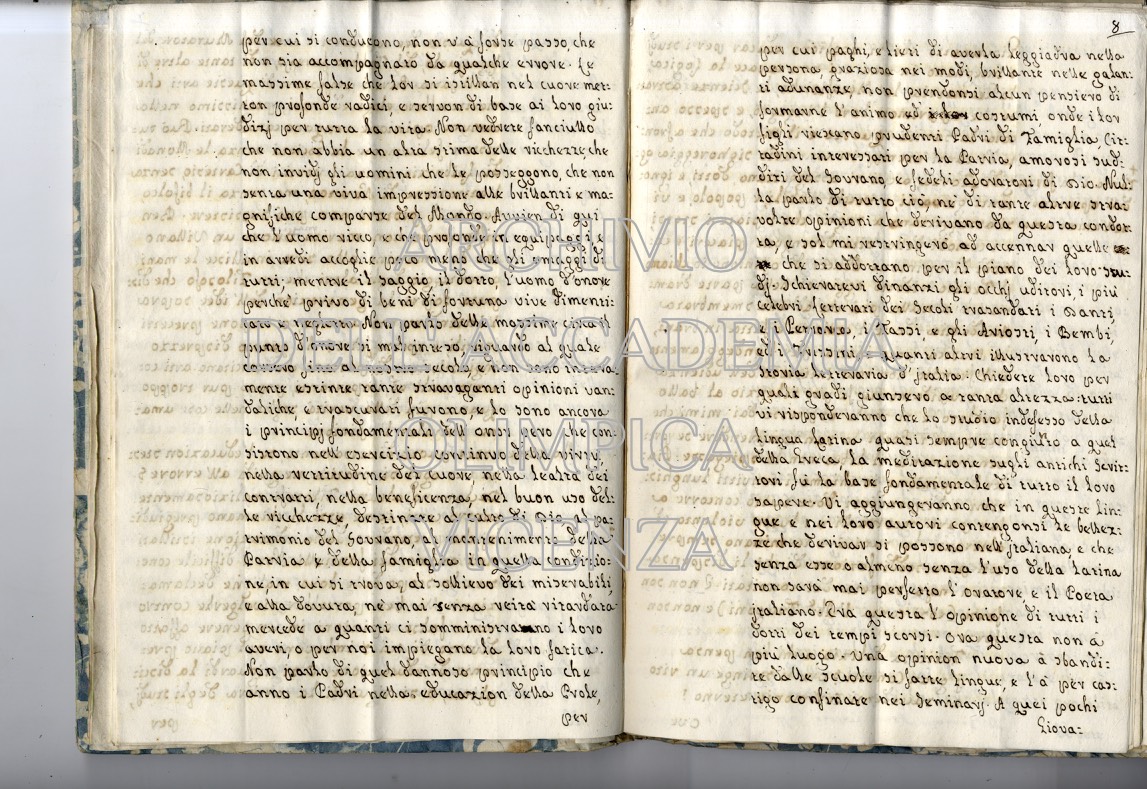 per cui si conducono, non v'à forse passo, che
non sia accompagnato da qualche errore. Le
massime false che lor si istillan nel cuore met-
ton profonde radici, e servon di base ai loro giu-
dizj per tutta la vita. Non vedrete fanciullo
che non abbia un alta stima delle ricchezze, che
non invidj gli uomini che le posseggono, che non
senta una viva impressione alle brillanti e ma-
gnifiche comparse del Mondo. Avvien di qui
che l'uomo ricco, e che profonde in equipaggi, e
in arredi accoglie poco meno che gli omaggi di
tutti, mentre il saggio, il dotto, l'uomo d'onore
perchè privo di beni di fortuna vive dimenti-
cato e negletto. Non parlo delle massime circa il
punto d'onore sì mal inteso, riguardo al quale
corsero fino al nostro secolo, e non sono intera-
mente estinte tante stravaganti opinioni van-
daliche, e trascurati furono, e lo sono ancora
i principj fondamentali dell'onor vero che con-
sistono nell'esercizio continuo della virtù,
nella rettitudine del cuore, nella lealtà dei
contratti, nella beneficenza, nel buon uso del-
le ricchezze, destinate al culto di Dio, al pa-
trimonio del Sovrano, al mantenimento della
Patria e della famiglia in quella condizio-
ne, in cui si trova, al sollievo dei miserabili,
e alla dovuta, nè mai senza reità ritardata
mercede a quanti ci somministrano i loro
averi, o per noi impiegano la loro fatica.
Non parlo di quel dannoso principio che
anno i Padri nella educazion della Prole,
per
8
per cui paghi, e lieti di averla leggiadra nella
persona, graziosa nei modi, brillante nelle galan-
ti adunanze, non prendonsi alcun pensiero di
formarne l'animo ed i costumi onde i lor
figli riescano prudenti Padri di Famiglia, Cit-
tadini interessati per la Patria, amorosi sud-
diti del Sovrano, e fedeli adoratori di Dio. Nul-
la parlo di tutto ciò, nè di tante altre stra-
volte opinioni che derivano da questa condot-
ta, e sol mi restringerò ad accennar quelle
che si addottano per il piano dei loro stu-
dj. Schieratevi dinanzi gli occhj uditori, i più
celebri Letterati dei Secoli trasandati i Danti
e i Petrarca, i Tassi e gli Ariosti, i Bembi,
ed i Trissini, e quanti altri illustrarono la
storia letteraria d'Italia. Chiedete loro per
quali gradi giunsero a tanta altezza: tutti
vi risponderanno che lo studio indefesso della
lingua latina quasi sempre congiunto a quel
della Greca, la meditazione sugli antichi Scrit-
tori fù la base fondamentale di tutto il loro
sapere. Vi aggiungeranno che in queste lin-
gue, e nei loro autori contengonsi le bellez-
ze che derivar si possono nell'Italiana, e che
senza esse o almeno senza l'uso della latina
non sarà mai perfetto l'oratore, e il Poeta
Italiano. Era questa l'opinione di tutti i
dotti dei tempi scorsi. Ora questa non à
più luogo. Una opinion nuova à sbandi-
te dalle Scuole sì fatte lingue, e l'à per cas-
tigo confinate nei Seminarj. A quei pochi
Giova-
ARCHIVIO
DELL'ACCADEMIA
OLIMPICA
VICENZA